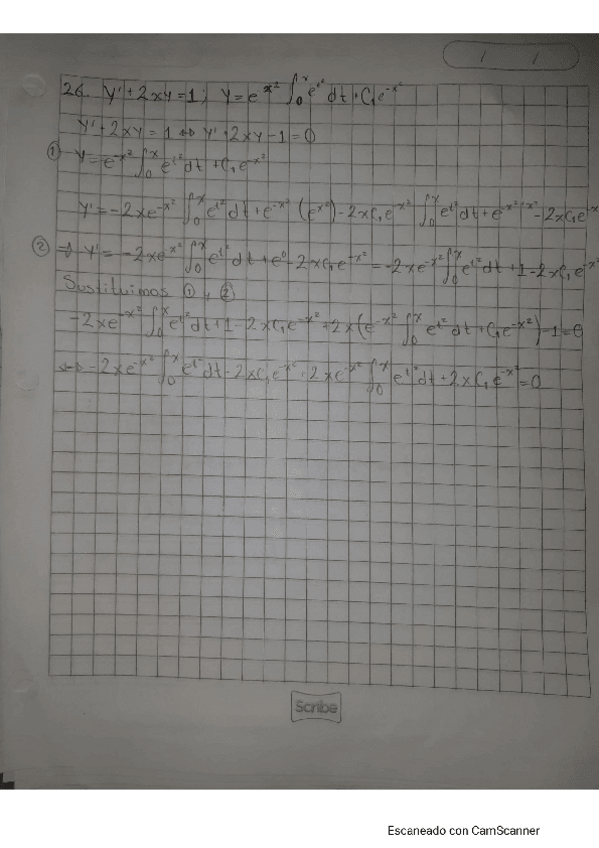 / /
26. y'+2xy=1; y=e^-x² ∫₀ˣ e^t² dt + C₁e^-x²
y'+2xy=1 ⇔ y'+2xy-1=0
① y=e^-x² ∫₀ˣ e^t² dt + C₁e^-x²
y'=-2xe^-x² ∫₀ˣ e^t² dt + e^-x² (e^x²) - 2xC₁e^-x² ∫₀ˣ e^t² dt + e^-x²+x² - 2xC₁e^-x
② ⇒ y'= -2xe^-x² ∫₀ˣ e^t² dt + e⁰ - 2xC₁e^-x² = -2xe^-x² ∫₀ˣ e^t² dt + 1 - 2xC₁e^-x²
Sustituimos ① y ②
-2xe^-x² ∫₀ˣ e^t² dt + 1 - 2xC₁e^-x² + 2x(e^-x² ∫₀ˣ e^t² dt + C₁e^-x²) - 1 = 0
⇔ -2xe^-x² ∫₀ˣ e^t² dt - 2xC₁e^-x² + 2xe^-x² ∫₀ˣ e^t² dt + 2xC₁e^-x² = 0
Scribe
Escaneado con CamScanner